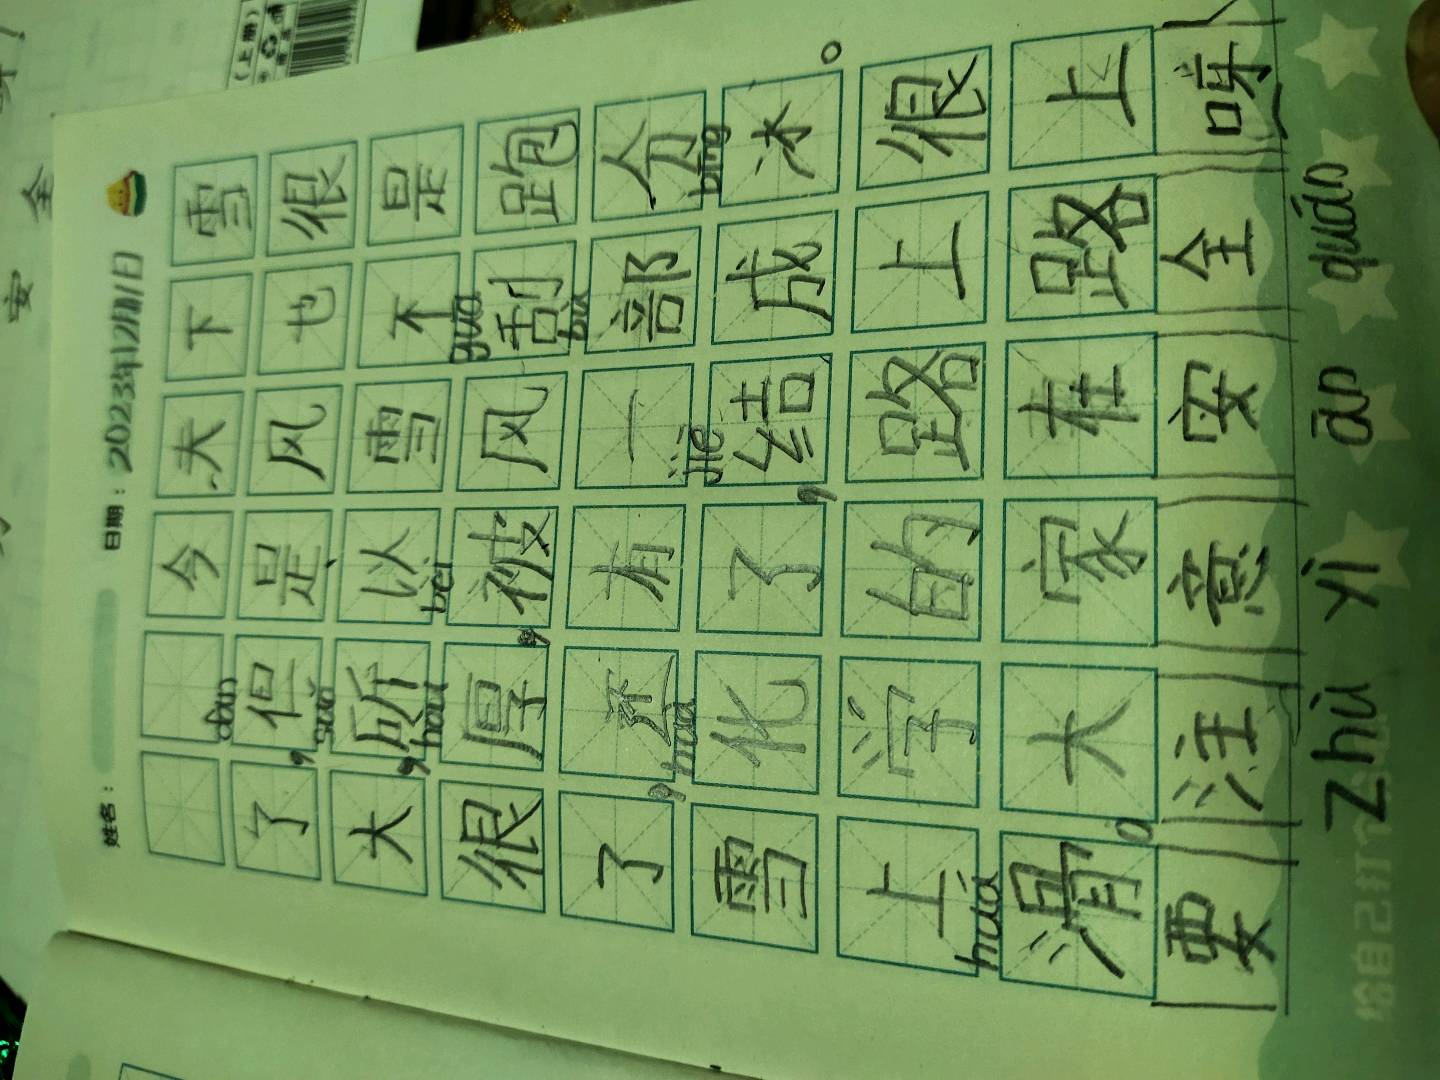 姓名： 日期：2023年12月11日
今天下雪
dàn
了，但是风也很
suǒ
大，所以雪不是
hòu bèi guā
很厚，被风刮跑
bù
了，还有一部分
huà jié bīng
雪化了，结成冰。
上学的路上很
huá
滑。大家在路上
要注意安全呀！
zhù yì ān quán
给自己打个分
安全
（上册）